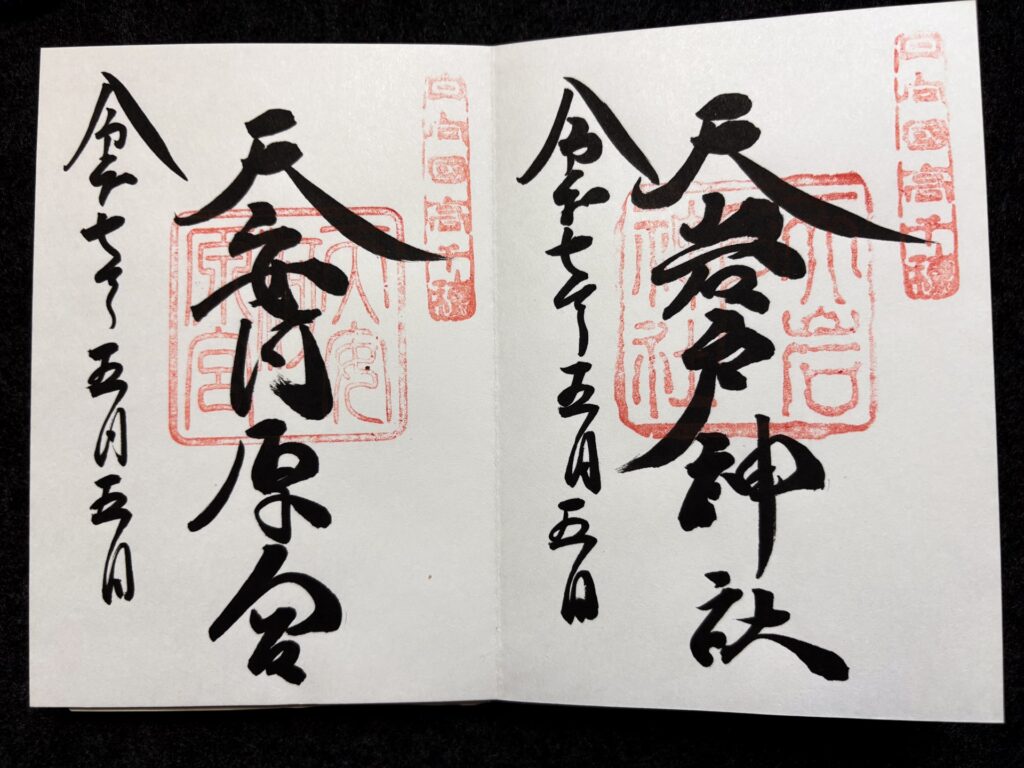 日向國高千穂
天岩戸神社
天岩戸神社
令和七年五月五日
日向國高千穂
天安河原宮
天安河原宮
令和七年五月五日